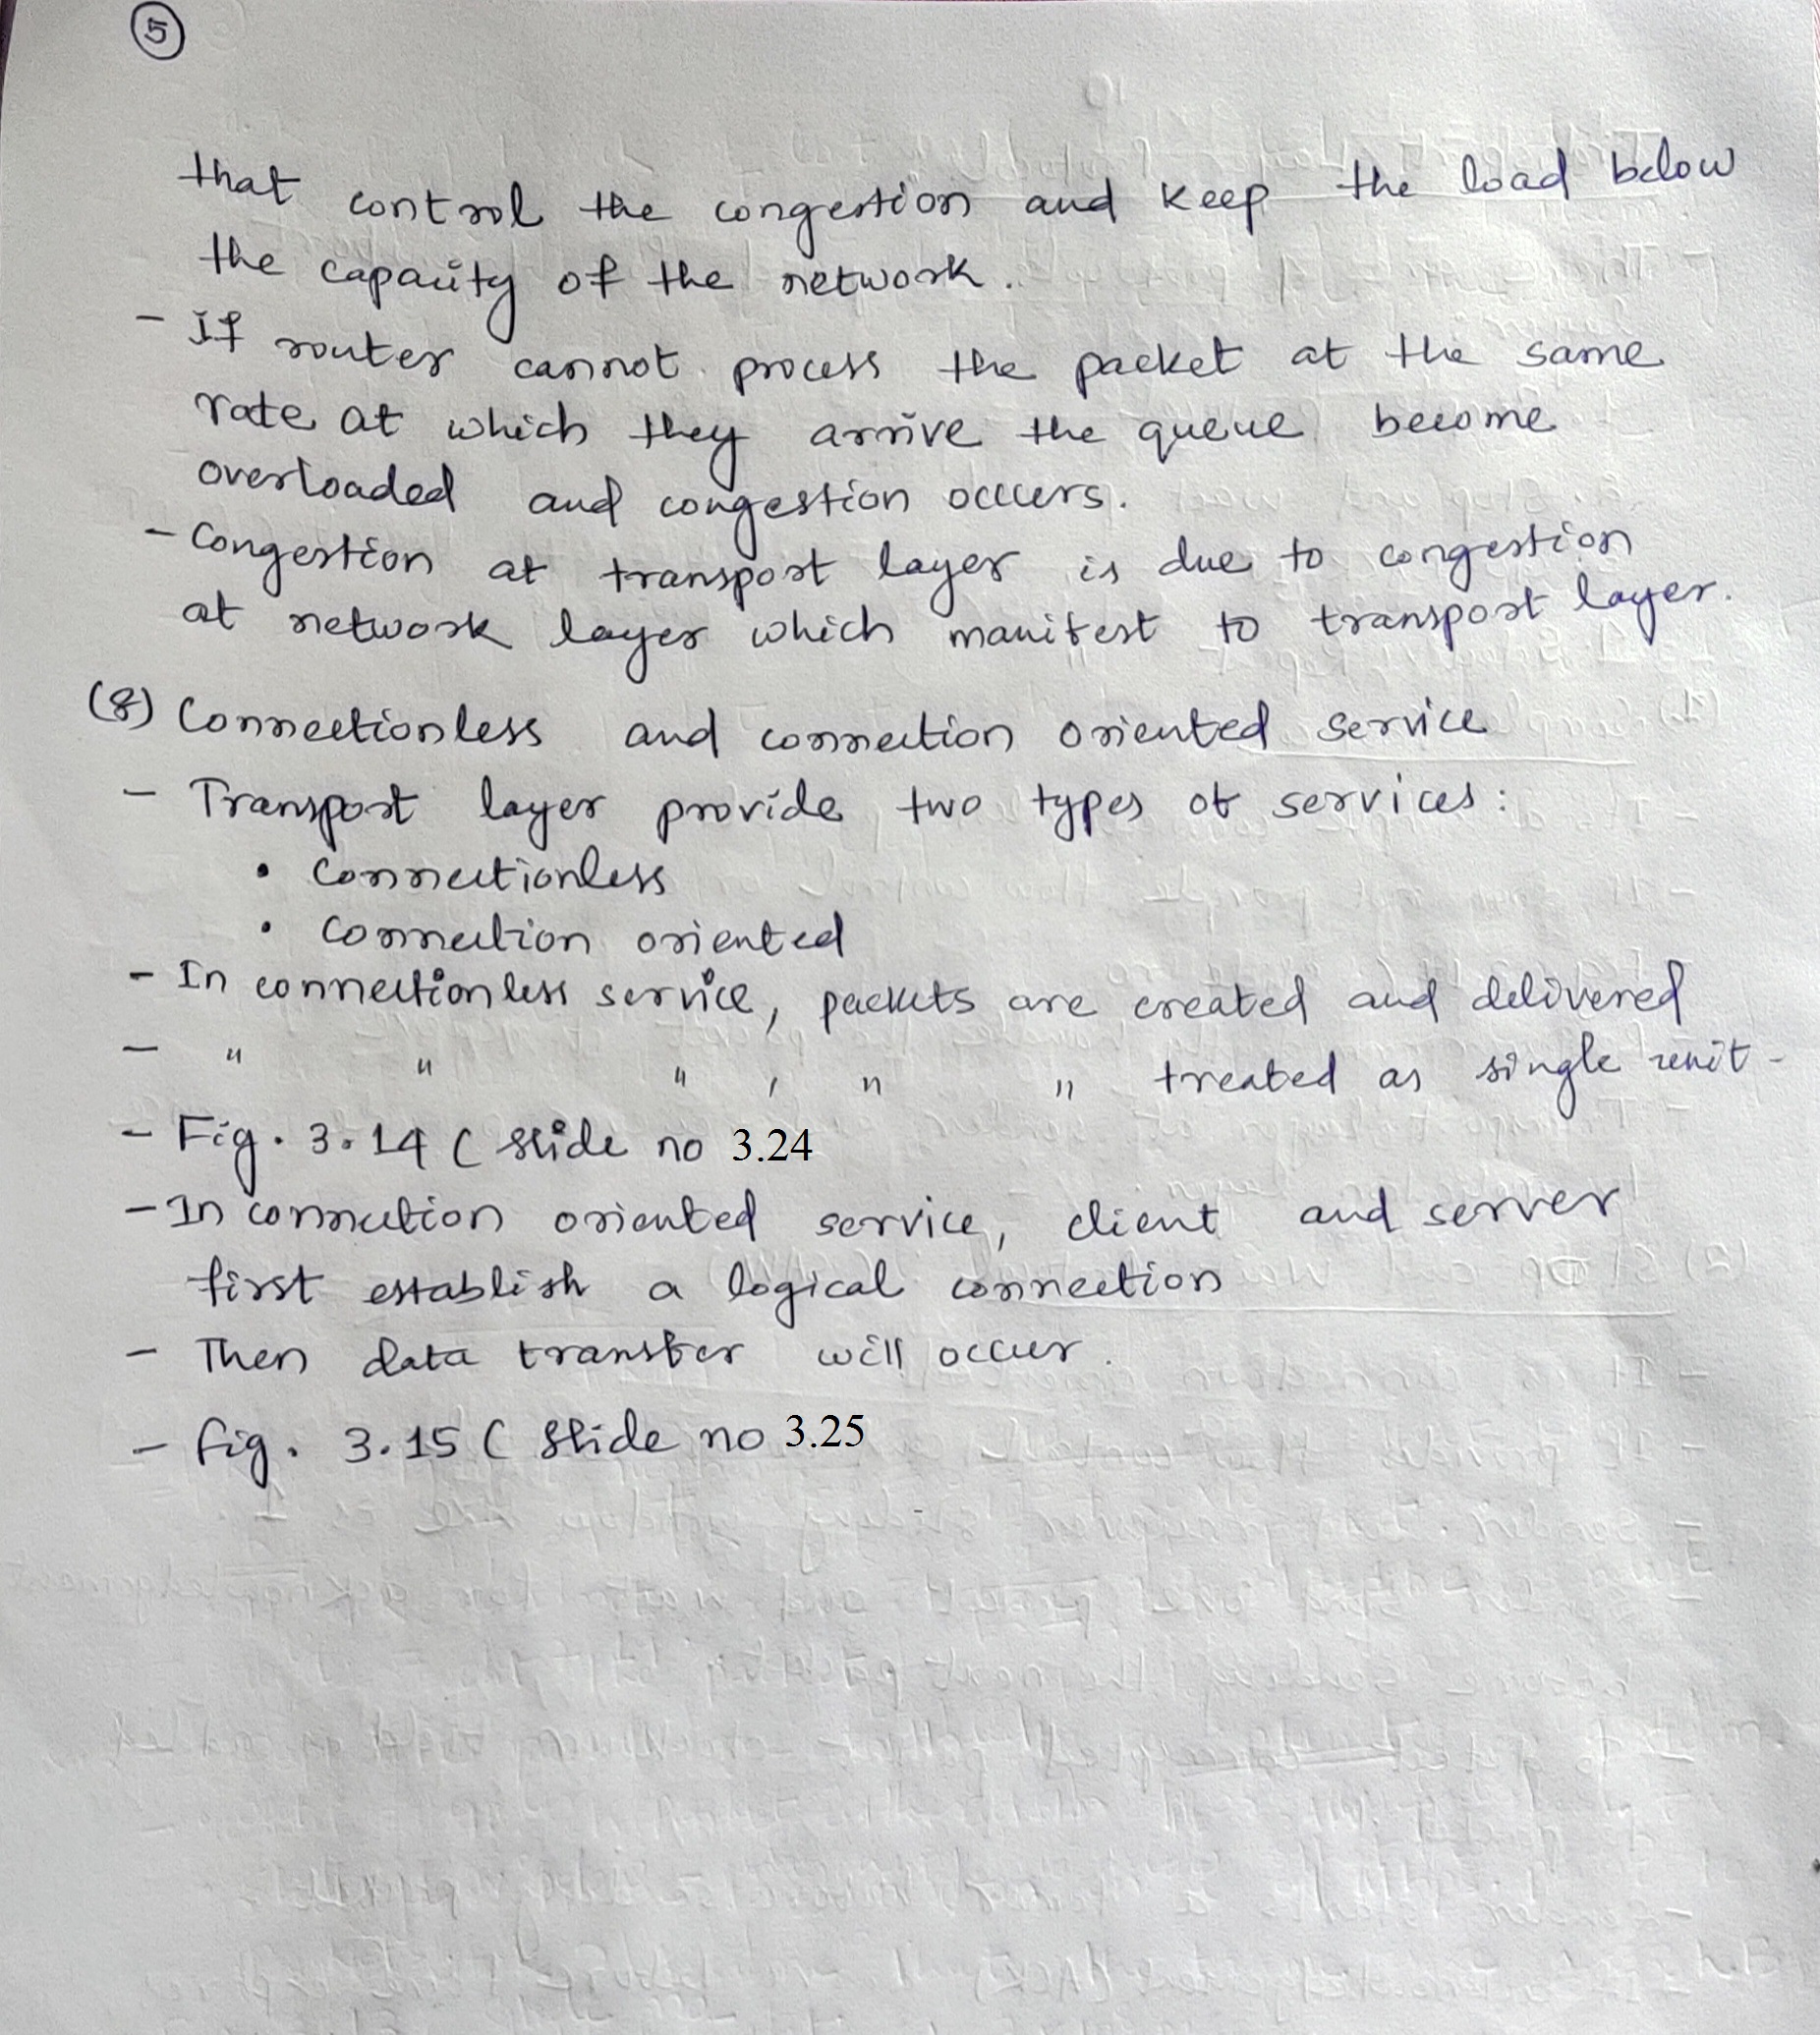 5
that control the congestion and keep the load below
the capacity of the network.
- If router cannot process the packet at the same
rate at which they arrive the queue become
overloaded and congestion occurs.
- Congestion at transport layer is due to congestion
at network layer which manifest to transport layer.
(8) Connectionless and connection oriented service
- Transport layer provide two types of services :
• Connectionless
• Connection oriented
- In connectionless service, packets are created and delivered
- " " " , " " treated as single unit -
- Fig. 3.14 ( slide no 3.24
- In connection oriented service, client and server
first establish a logical connection
- Then data transfer will occur.
- fig. 3.15 ( slide no 3.25